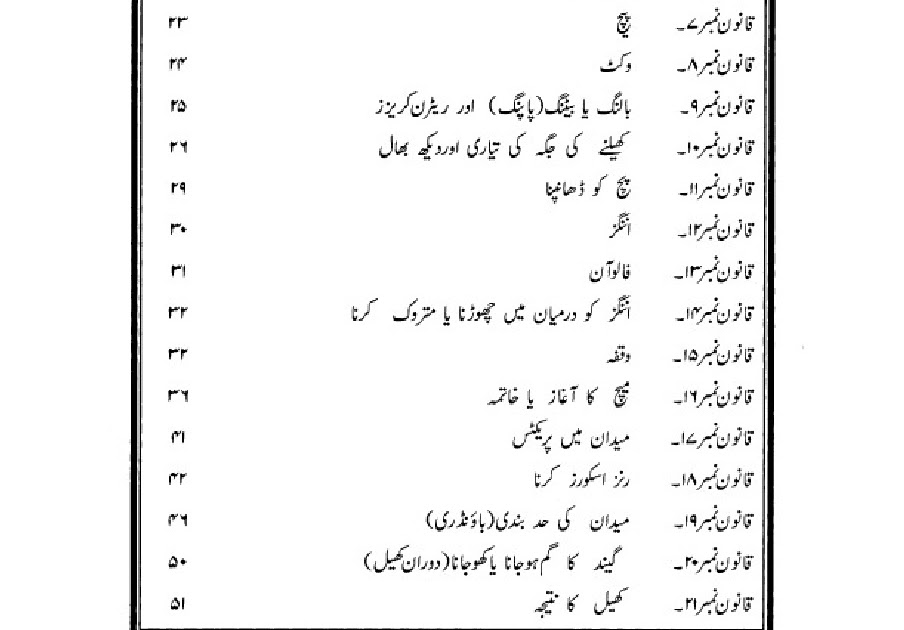 قانون نمبر ۷۔ پچ ۲۳
قانون نمبر ۸۔ وکٹ ۲۴
قانون نمبر ۹۔ بالنگ یا بیٹنگ (پاپنگ) اور ریٹرن کریزز ۲۵
قانون نمبر ۱۰۔ کھیلنے کی جگہ کی تیاری اور دیکھ بھال ۲۶
قانون نمبر ۱۱۔ پچ کو ڈھانپنا ۲۹
قانون نمبر ۱۲۔ اننگز ۳۰
قانون نمبر ۱۳۔ فالوآن ۳۱
قانون نمبر ۱۴۔ اننگز کو درمیان میں چھوڑنا یا متروک کرنا ۳۲
قانون نمبر ۱۵۔ وقفہ ۳۲
قانون نمبر ۱۶۔ میچ کا آغاز یا خاتمہ ۳۶
قانون نمبر ۱۷۔ میدان میں پریکٹس ۴۱
قانون نمبر ۱۸۔ رنز اسکورز کرنا ۴۲
قانون نمبر ۱۹۔ میدان کی حد بندی (باؤنڈری) ۴۶
قانون نمبر ۲۰۔ گیند کا گم ہوجانا یا کھوجانا (دوران کھیل) ۵۰
قانون نمبر ۲۱۔ کھیل کا نتیجہ ۵۱